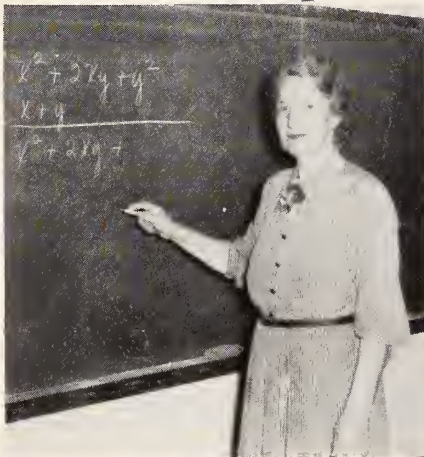 x² + 2xy + y²
x + y
x² + 2xy +